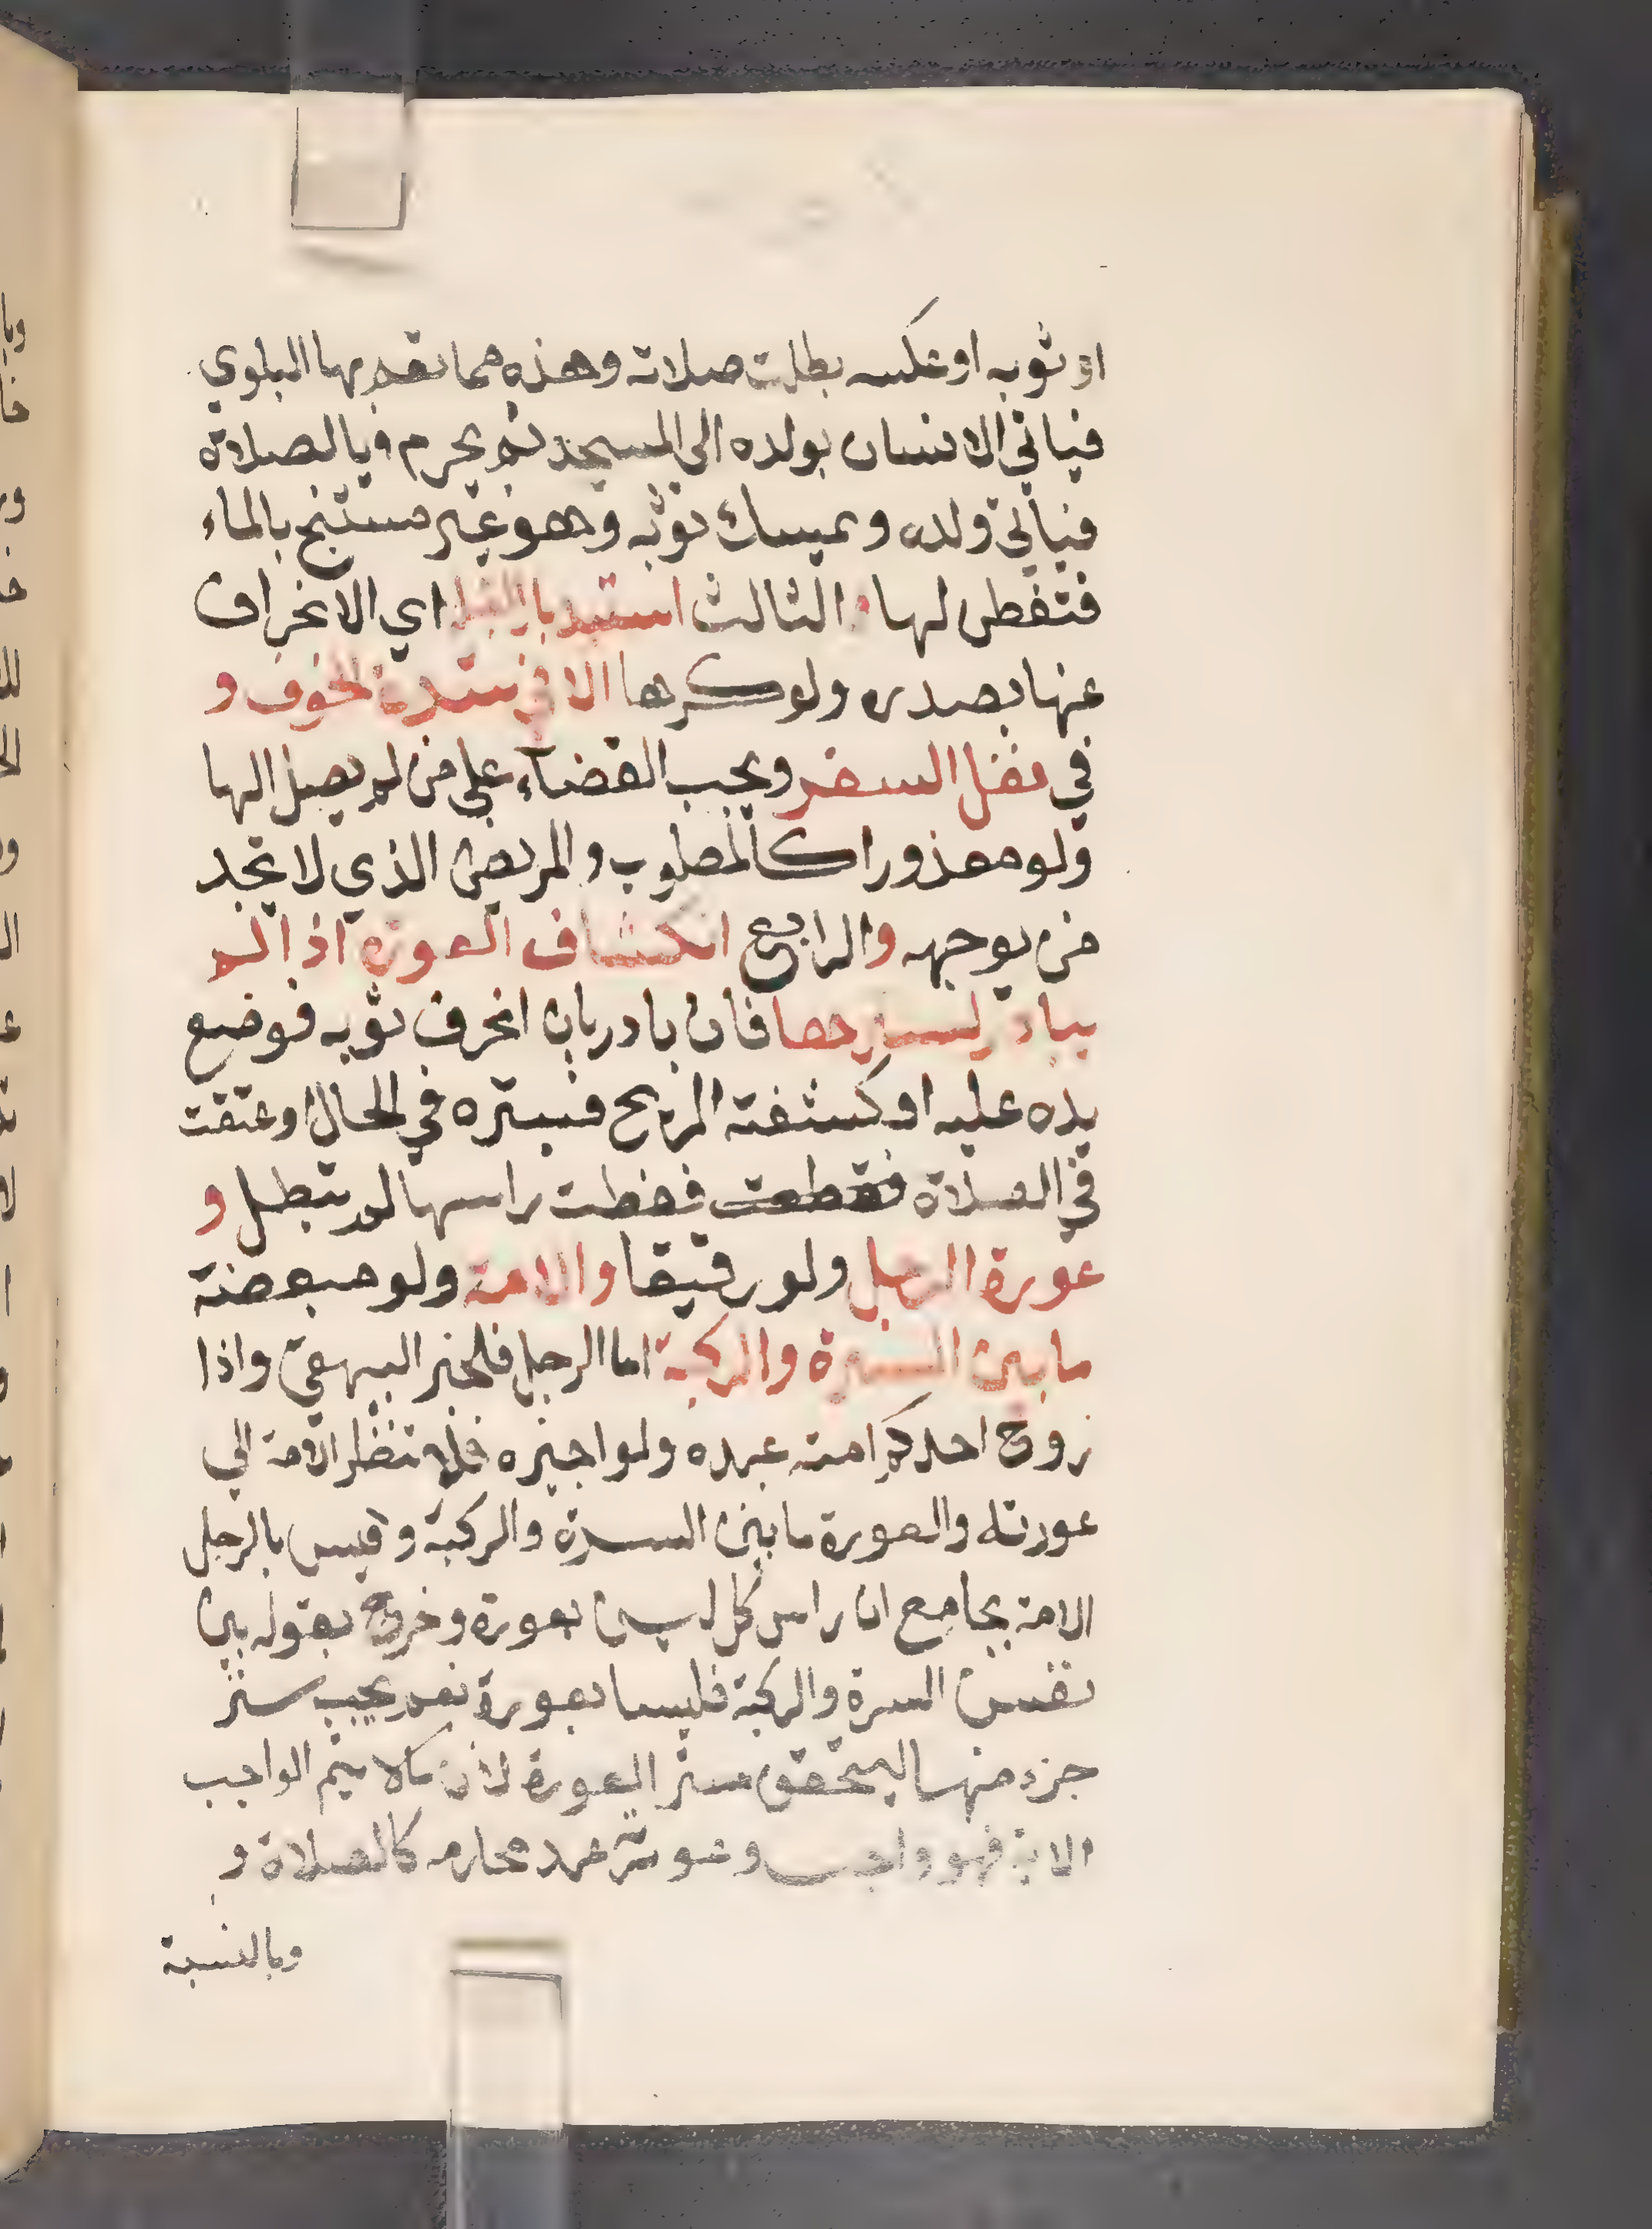 او ثوبه او عكسه بطلت صلاته وهذه مما تعم بها البلوي
فياتي الانسان بولده الي المسجد ثم يحرم ويا الصلاة
فياتي ولده ويمسك ثوبه وهو غير مستنج بالماء
فتفطن لها والثالث استدبار القبلة اي الانحراف
عنها بصدره ولو كرها الا في شدة الخوف و
في نفل السفر ويجب القضاء علي من لم يصل اليها
ولو معذورا كالمصلوب والمريض الذي لا يجد
من يوجهه والرابع انكشاف العورة اذا لم
يبادر لسترها فان بادر بان انحرف ثوبه فوضع
يده عليه او كشفته الريح فستره في الحال او عتقت
في الصلاة فقطعت فغطت راسها لم تبطل و
عورة الرجل ولو رقيقا والامة ولو مبعضة
ما بين السرة والركبة اما الرجل فلخبر البيهقي واذا
زوج احدكم امته عبده ولو اجيره فلا تنظر الامة الي
عورته والعورة ما بين السرة والركبة وقيس بالرجل
الامة بجامع ان راس كل ليس بعورة وخرج بقوله بين
نفس السرة والركبة فليسا بعورة نعم يجب ستر
جزء منهما ليتحقق ستر العورة لان مالا يتم الواجب
الا به فهو واجب وعورتها عند محارمه كالصلاة و
وبالنسبة